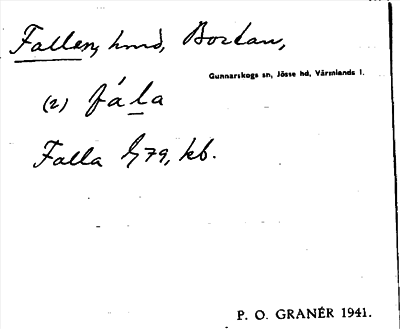 Fallen, hmd, Bortan,
Gunnarskogs sn, Jösse hd, Värmlands l.
(2) fála
Falla 79, kb.
P. O. GRANÉR 1941.